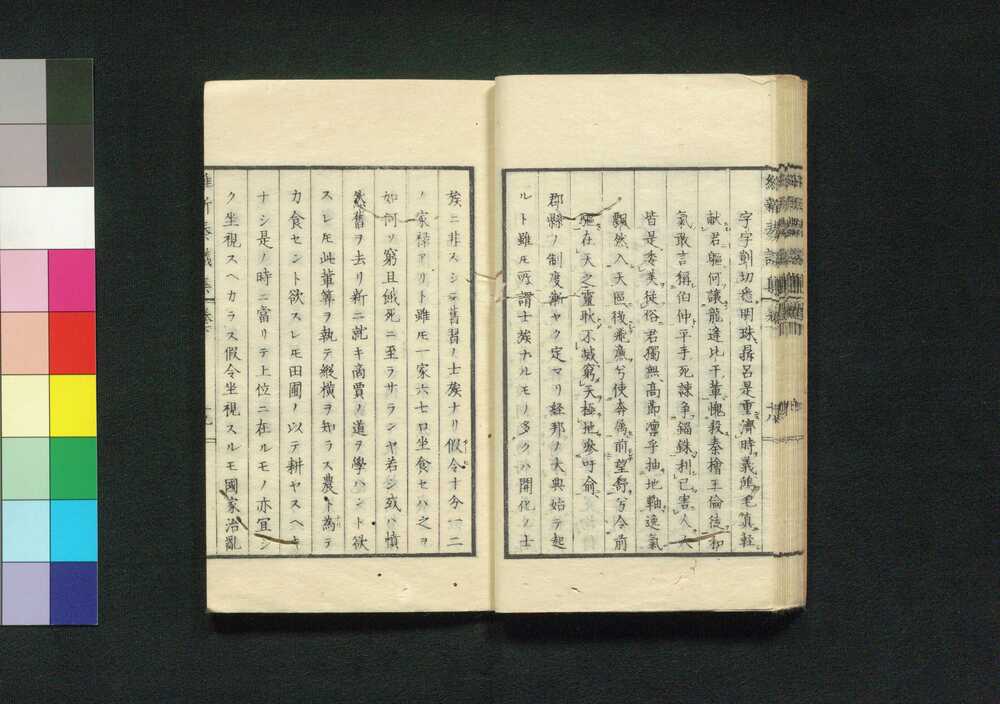 字字剴切悉明珠昴呂是重濟時義鴻毛眞輕
献君軀何讓龍逢比干輩愧殺秦檜王倫徒和
氣敢言稱伯仲平手死諫爭錙銖利己害人人
皆是委美徒俗君獨無高節凛乎抽地軸逸氣
飄然入天區後飛廉兮使奔属前望舒兮令前
驅在天之靈耿不滅窮天極地參吁俞
郡縣ノ制度漸ヤク定マリ経邦ノ大典始テ起
ルト雖𪜈所謂士族ナルモノ多クハ開化ノ士
族ニ非スシテ舊習ノ士族ナリ假令十分一二
ノ家禄アリト雖𪜈一家六七口坐食セハ之ヲ
如何ソ窮且餓死ニ至ラサランヤ若シ或ハ憤
然舊ヲ去リ新ニ就キ商賈ノ道ヲ學ハント欲
スレ𪜈此輩筭ヲ執テ縦横ヲ知ラス農ト為テ
力食セント欲スレ𪜈田圃ノ以テ耕ヤスヘキ
ナシ是ノ時ニ富リテ上位ニ在ルモノ亦宜シ
ク坐視スヘカラス假令坐視スルモ國家治亂